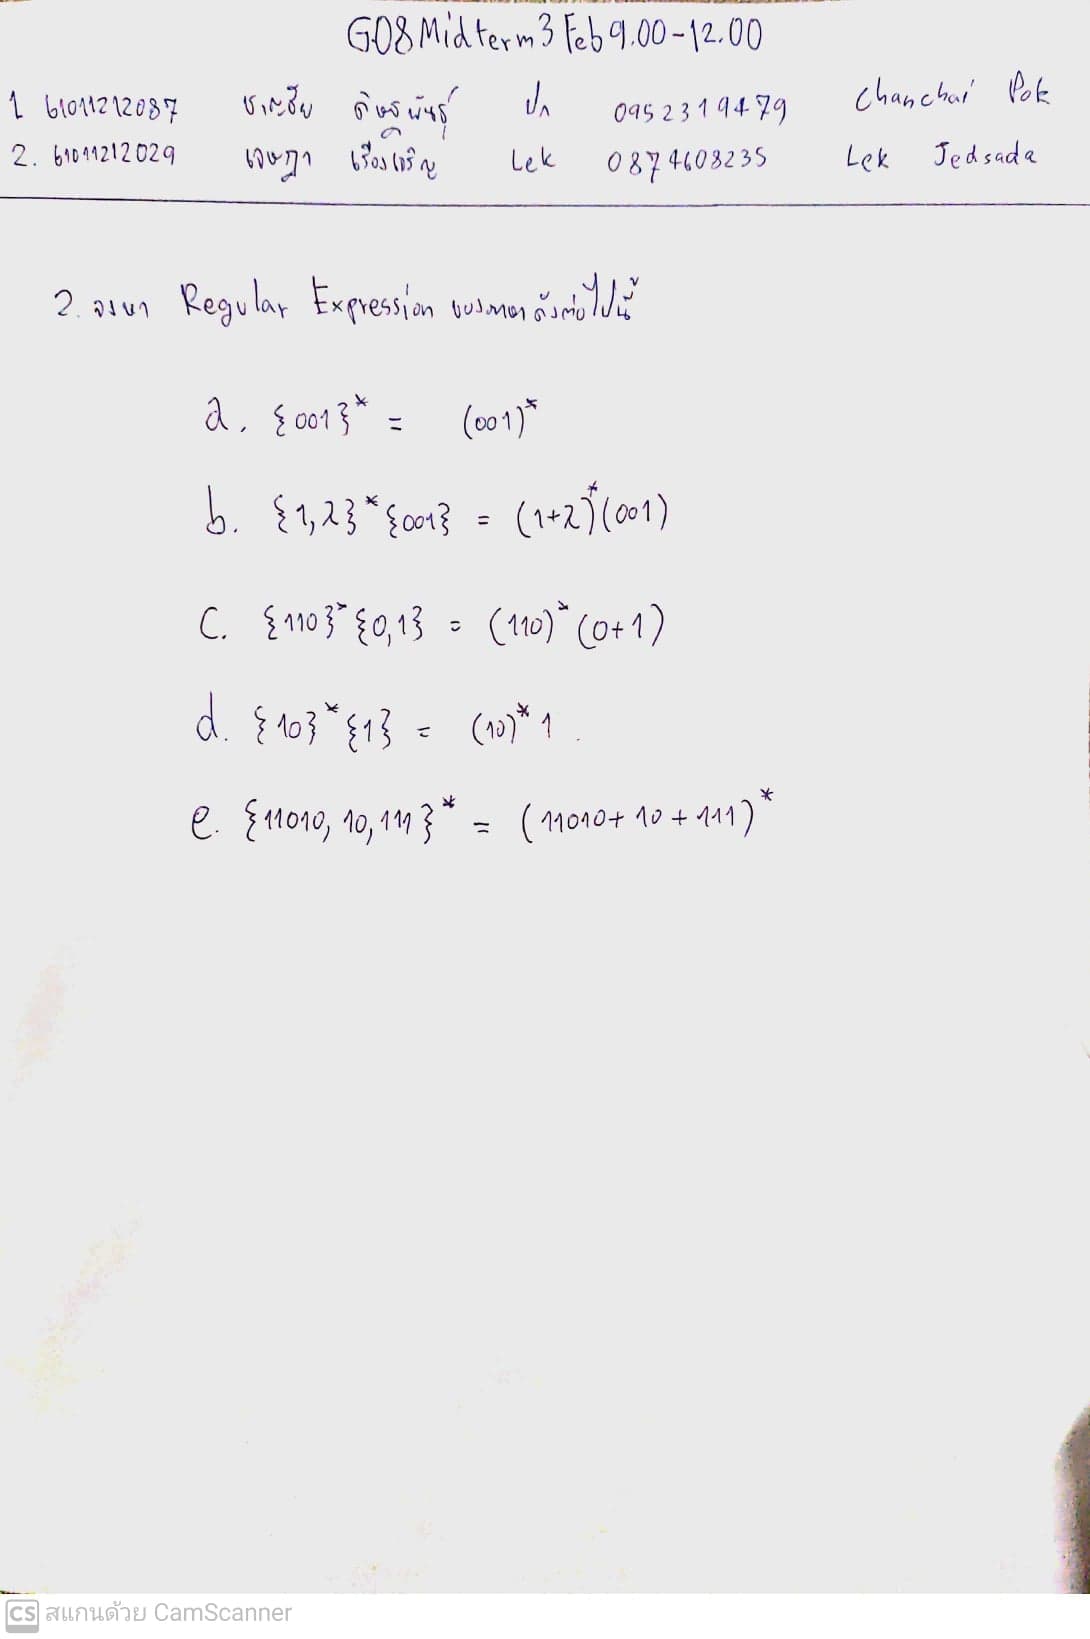 G08 Midterm 3 Feb 9.00-12.00
1 61011212087 ชาญชัย ปก 0952319479 Chanchai Pok
2. 61011212029 เจษฎา เรืองเจริญ Lek 0874608235 Lek Jedsada
2. จงหา Regular Expression ของภาษาดังต่อไปนี้
a. {001}* = (001)*
b. {1,2}*{001} = (1+2)*(001)
c. {110}*{0,1} = (110)*(0+1)
d. {10}*{1} = (10)*1
e. {11010, 10, 111}* = (11010+10+111)*
CS สแกนด้วย CamScanner